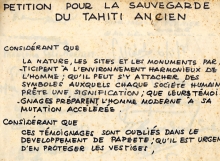 PETITION POUR LA SAUVEGARDE
DU TAHITI ANCIEN
CONSIDÉRANT QUE
LA NATURE, LES SITES ET LES MONUMENTS PAR.
TICIPENT À L'ENVIRONNEMENT HARMONIEUX DE
L'HOMME; QU'IL PEUT S'Y ATTACHER DES
SYMBOLES AUXQUELS CHAQUE SOCIÉTÉ HUMAINE
PRÊTE UNE SIGNIFICATION; QUE LEURS TÉMOI.
.GNAGES PREPARENT L'HOMME MODERNE À SA
MUTATION ACCELEREE.
CONSIDÉRANT QUE
CES TÉMOIGNAGES SONT OUBLIÉS DANS LE
DEVELOPPEMENT DE PAPEETE; QU'IL EST URGENT
D'EN PROTÉGER LES VESTIGES;